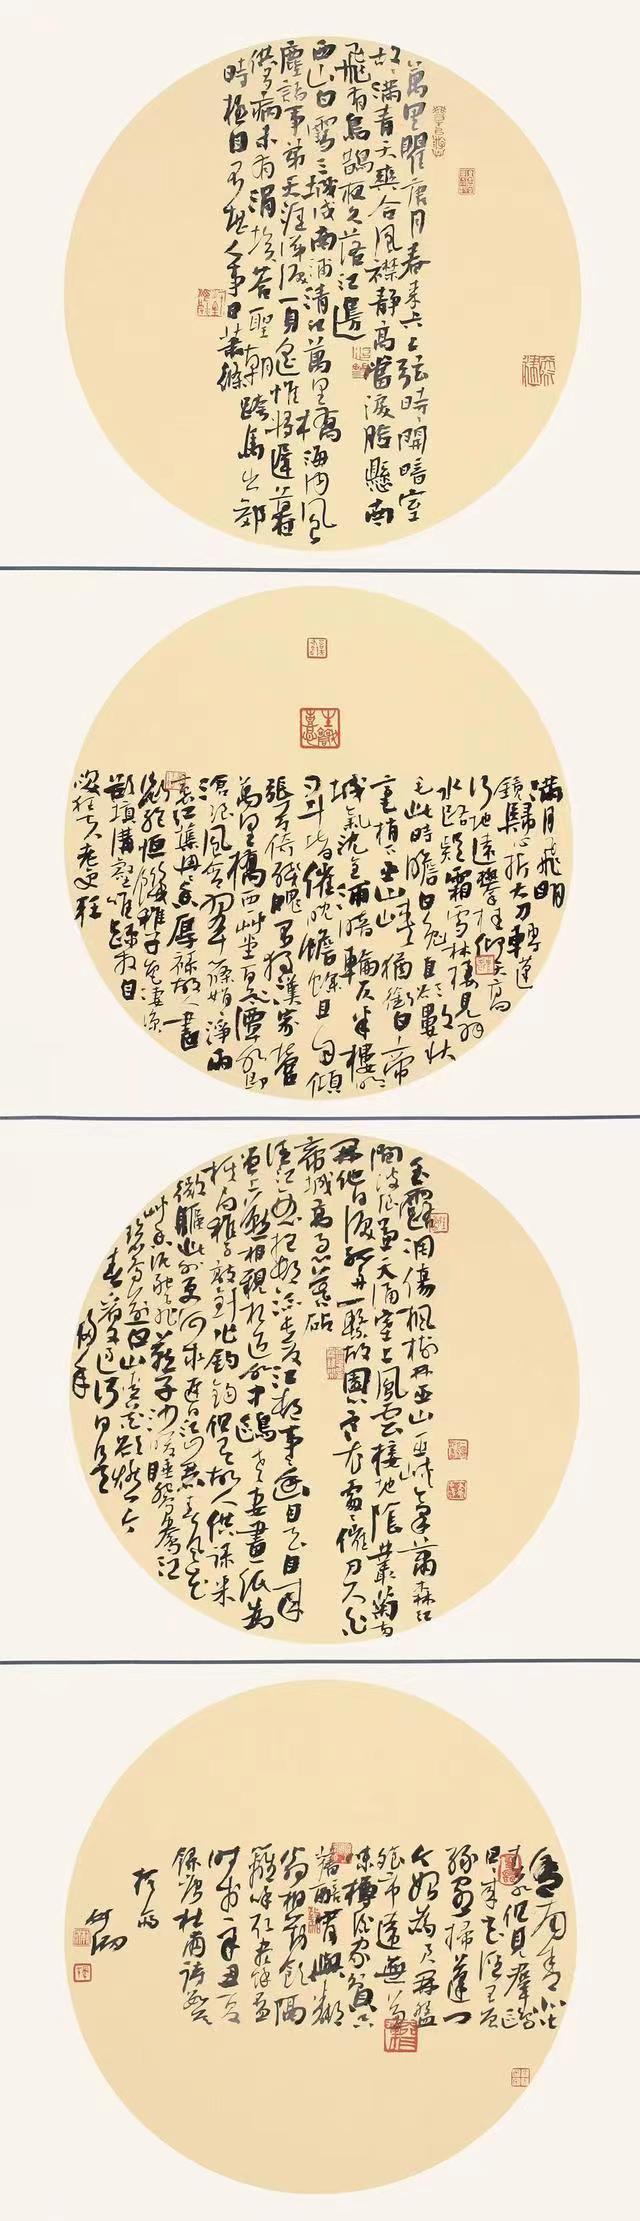 萬里瞿唐月春來六上弦時時開暗室
故故滿青天爽合風襟靜高當淚臉懸南
飛有烏鵲夜久落江邊
西山白雪三城戍南浦清江萬里橋海內風
塵諸弟天涯涕淚一身遙惟將遲暮
供多病未有涓埃答聖朝跨馬出郊
時極目不堪人事日蕭條
滿月飛明
鏡歸心折大刀轉蓬
行地遠攀桂仰天高
水路疑霜雪林棲見羽
毛此時瞻白兔直欲數秋
毫稍下巫山峽猶銜白帝
城氣沈全浦暗輪仄半樓明
刁斗皆催曉蟾蜍且自傾
張弓倚殘魄不獨漢家營
萬里橋西一草堂百花潭水即
滄浪風含翠篠娟娟淨雨
裛紅蕖冉冉香厚祿故人書
斷絕恒飢稚子色淒涼
欲填溝壑唯疏放自
笑狂夫老更狂
玉露凋傷楓樹林巫山巫峽氣蕭森江
間波浪兼天湧塞上風雲接地陰叢菊兩
開他日淚孤舟一繫故園心寒衣處處催刀尺白
帝城高急暮砧
清江一曲抱村流長夏江村事事幽自去自來
梁上燕相親相近水中鷗老妻畫紙為
棋局稚子敲針作釣鉤但有故人供祿米
微軀此外更何求遲日江山麗春風花
草香泥融飛燕子沙暖睡鴛鴦江
碧鳥逾白山青花欲燃今
春看又過何日是
歸年
舍南舍北皆
春水但見群鷗
日日來花徑不曾
緣客掃蓬門
今始為君開盤
飧市遠無兼
味樽酒家貧只
舊醅肯與鄰
翁相對飲隔
籬呼取盡餘杯
時在辛丑夏
錄唐杜甫詩數首